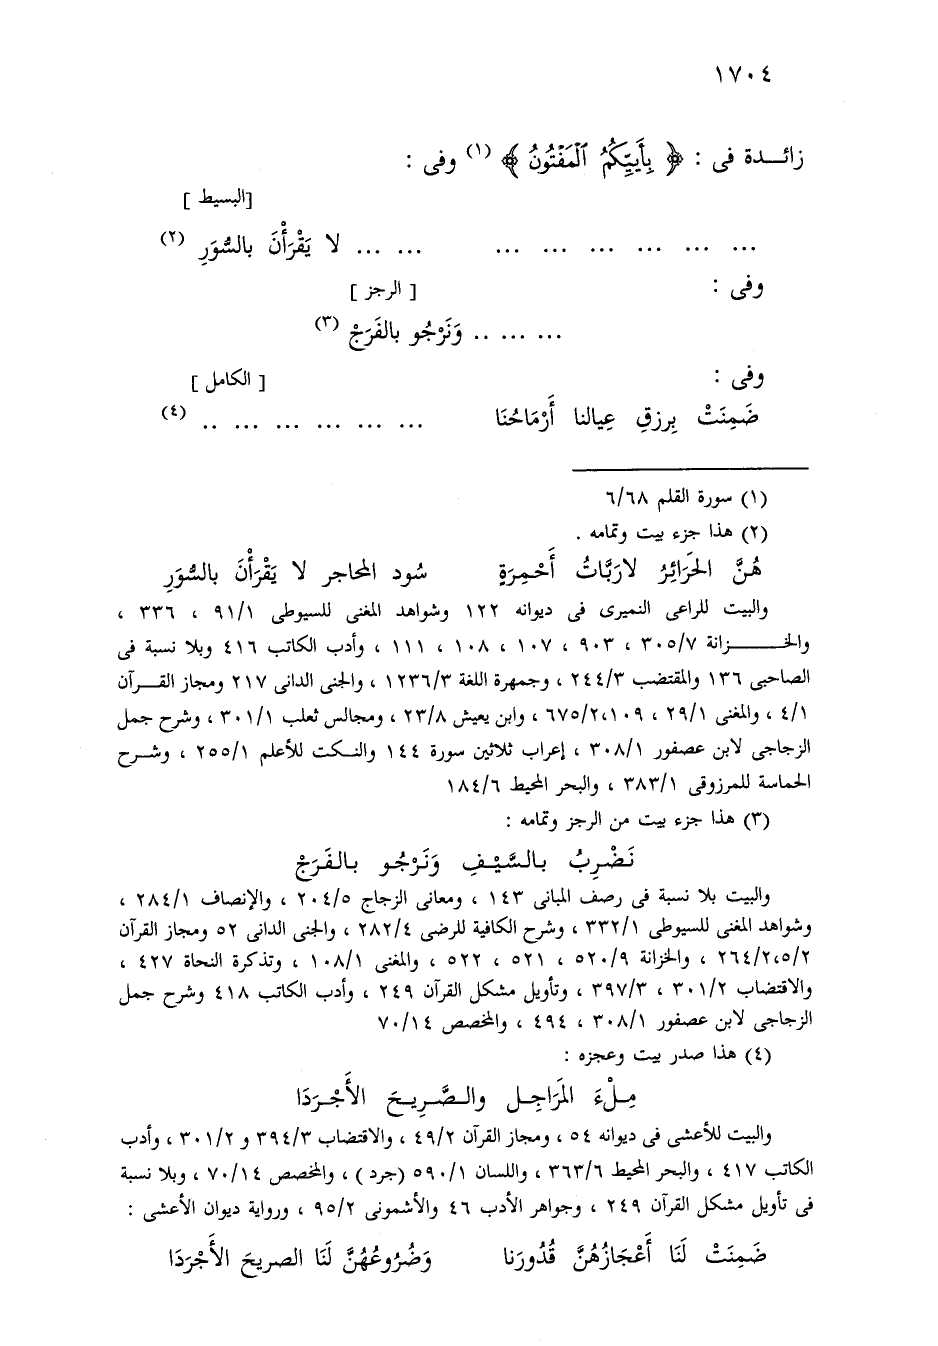 ١٧٠٤
زائـــدة فى : ﴿ بِأَييِّكُمُ ٱلْمَفْتُونُ ﴾ (١) وفى :
[البسيط ]
... ... ... ... ... ... ... ... لا يَقْرَأْنَ بالسُّوَرِ (٢)
وفى : [ الرجز ]
... ... .. وَنَرْجُو بالفَرَجْ (٣)
وفى : [ الكامل ]
ضَمِنَتْ بِرزقِ عِيالنا أَرْمَاحُنَا ... ... ... ... ... .. (٤)
(١) سورة القلم ٦/٦٨
(٢) هذا جزء بيت وتمامه .
هُنَّ الحَرَائِرُ لارَبَّاتُ أَحْمِرَةٍ سُود المحاجر لا يَقْرَأْنَ بالسُّوَرِ
والبيت للراعى النميرى فى ديوانه ١٢٢ وشواهد المغنى للسيوطى ٩١/١ ، ٣٣٦ ،
والخـــــــزانة ٣٠٥/٧ ، ٩٠٣ ، ١٠٧ ، ١٠٨ ، ١١١ ، وأدب الكاتب ٤١٦ وبلا نسبة فى
الصاحبى ١٣٦ والمقتضب ٢٤٤/٣ ، وجمهرة اللغة ١٢٣٦/٣ ، والجنى الدانى ٢١٧ ومجاز القـــرآن
٤/١ ، والمغنى ٢٩/١ ، ٦٧٥/٢،١٠٩ ، وابن يعيش ٢٣/٨ ، ومجالس ثعلب ٣٠١/١ ، وشرح جمل
الزجاجى لابن عصفور ٣٠٨/١ ، إعراب ثلاثين سورة ١٤٤ والنـكت للأعلم ٢٥٥/١ ، وشــرح
الحماسة للمرزوقى ٣٨٣/١ ، والبحر المحيط ١٨٤/٦
(٣) هذا جزء بيت من الرجز وتمامه :
نَضْرِبُ بـالسَّيْـفِ وَنَرْجُـو بـالفَـرَجْ
والبيت بلا نسبة فى رصف المبانى ١٤٣ ، ومعانى الزجاج ٢٠٤/٥ ، والإنصاف ٢٨٤/١ ،
وشواهد المغنى للسيوطى ٣٣٢/١ ، وشرح الكافية للرضى ٢٨٢/٤ ، والجنى الدانى ٥٢ ومجاز القرآن
٢٦٤/٢،٥/٢ ، والخزانة ٥٢٠/٩ ، ٥٢١ ، ٥٢٢ ، والمغنى ١٠٨/١ ، وتذكرة النحاة ٤٢٧ ،
والاقتضاب ٣٠١/٢ ، ٣٩٧/٣ ، وتأويل مشكل القرآن ٢٤٩ ، وأدب الكاتب ٤١٨ وشرح جمل
الزجاجى لابن عصفور ٣٠٨/١ ، ٤٩٤ ، والمخصص ٧٠/١٤
(٤) هذا صدر بيت وعجزه :
مِـلْءَ المَرَاجِـل والـصَّـرِيـحَ الأَجْـرَدَا
والبيت للأعشى فى ديوانه ٥٤ ، ومجاز القرآن ٤٩/٢ ، والاقتضاب ٣٩٤/٣ و ٣٠١/٢ ، وأدب
الكاتب ٤١٧ ، والبحر المحيط ٣٦٣/٦ ، واللسان ٥٩٠/١ (جرد ) ، والمخصص ٧٠/١٤ ، وبلا نسبة
فى تأويل مشكل القرآن ٢٤٩ ، وجواهر الأدب ٤٦ والأشمونى ٩٥/٢ ، ورواية ديوان الأعشى :
ضَمِنَتْ لَنَا أَعْجَازُهُنَّ قُدُورَنا وَضُرُوعُهُنَّ لَنَا الصريحَ الأَجْرَدَا